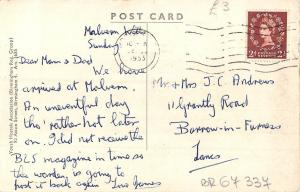 £3
POST CARD
Malvern Wells
Sunday
1953
Dear Mam & Dad
We have
arrived at Malvern.
An uneventful day
tho' rather hot later
on. I did not receive the
BLS magazine in time so
the warden is going to
post it back again
Mr + Mrs J.C. Andrews
11 Grantly Road
Barrow-in-Furness
Lancs
RR 64 337